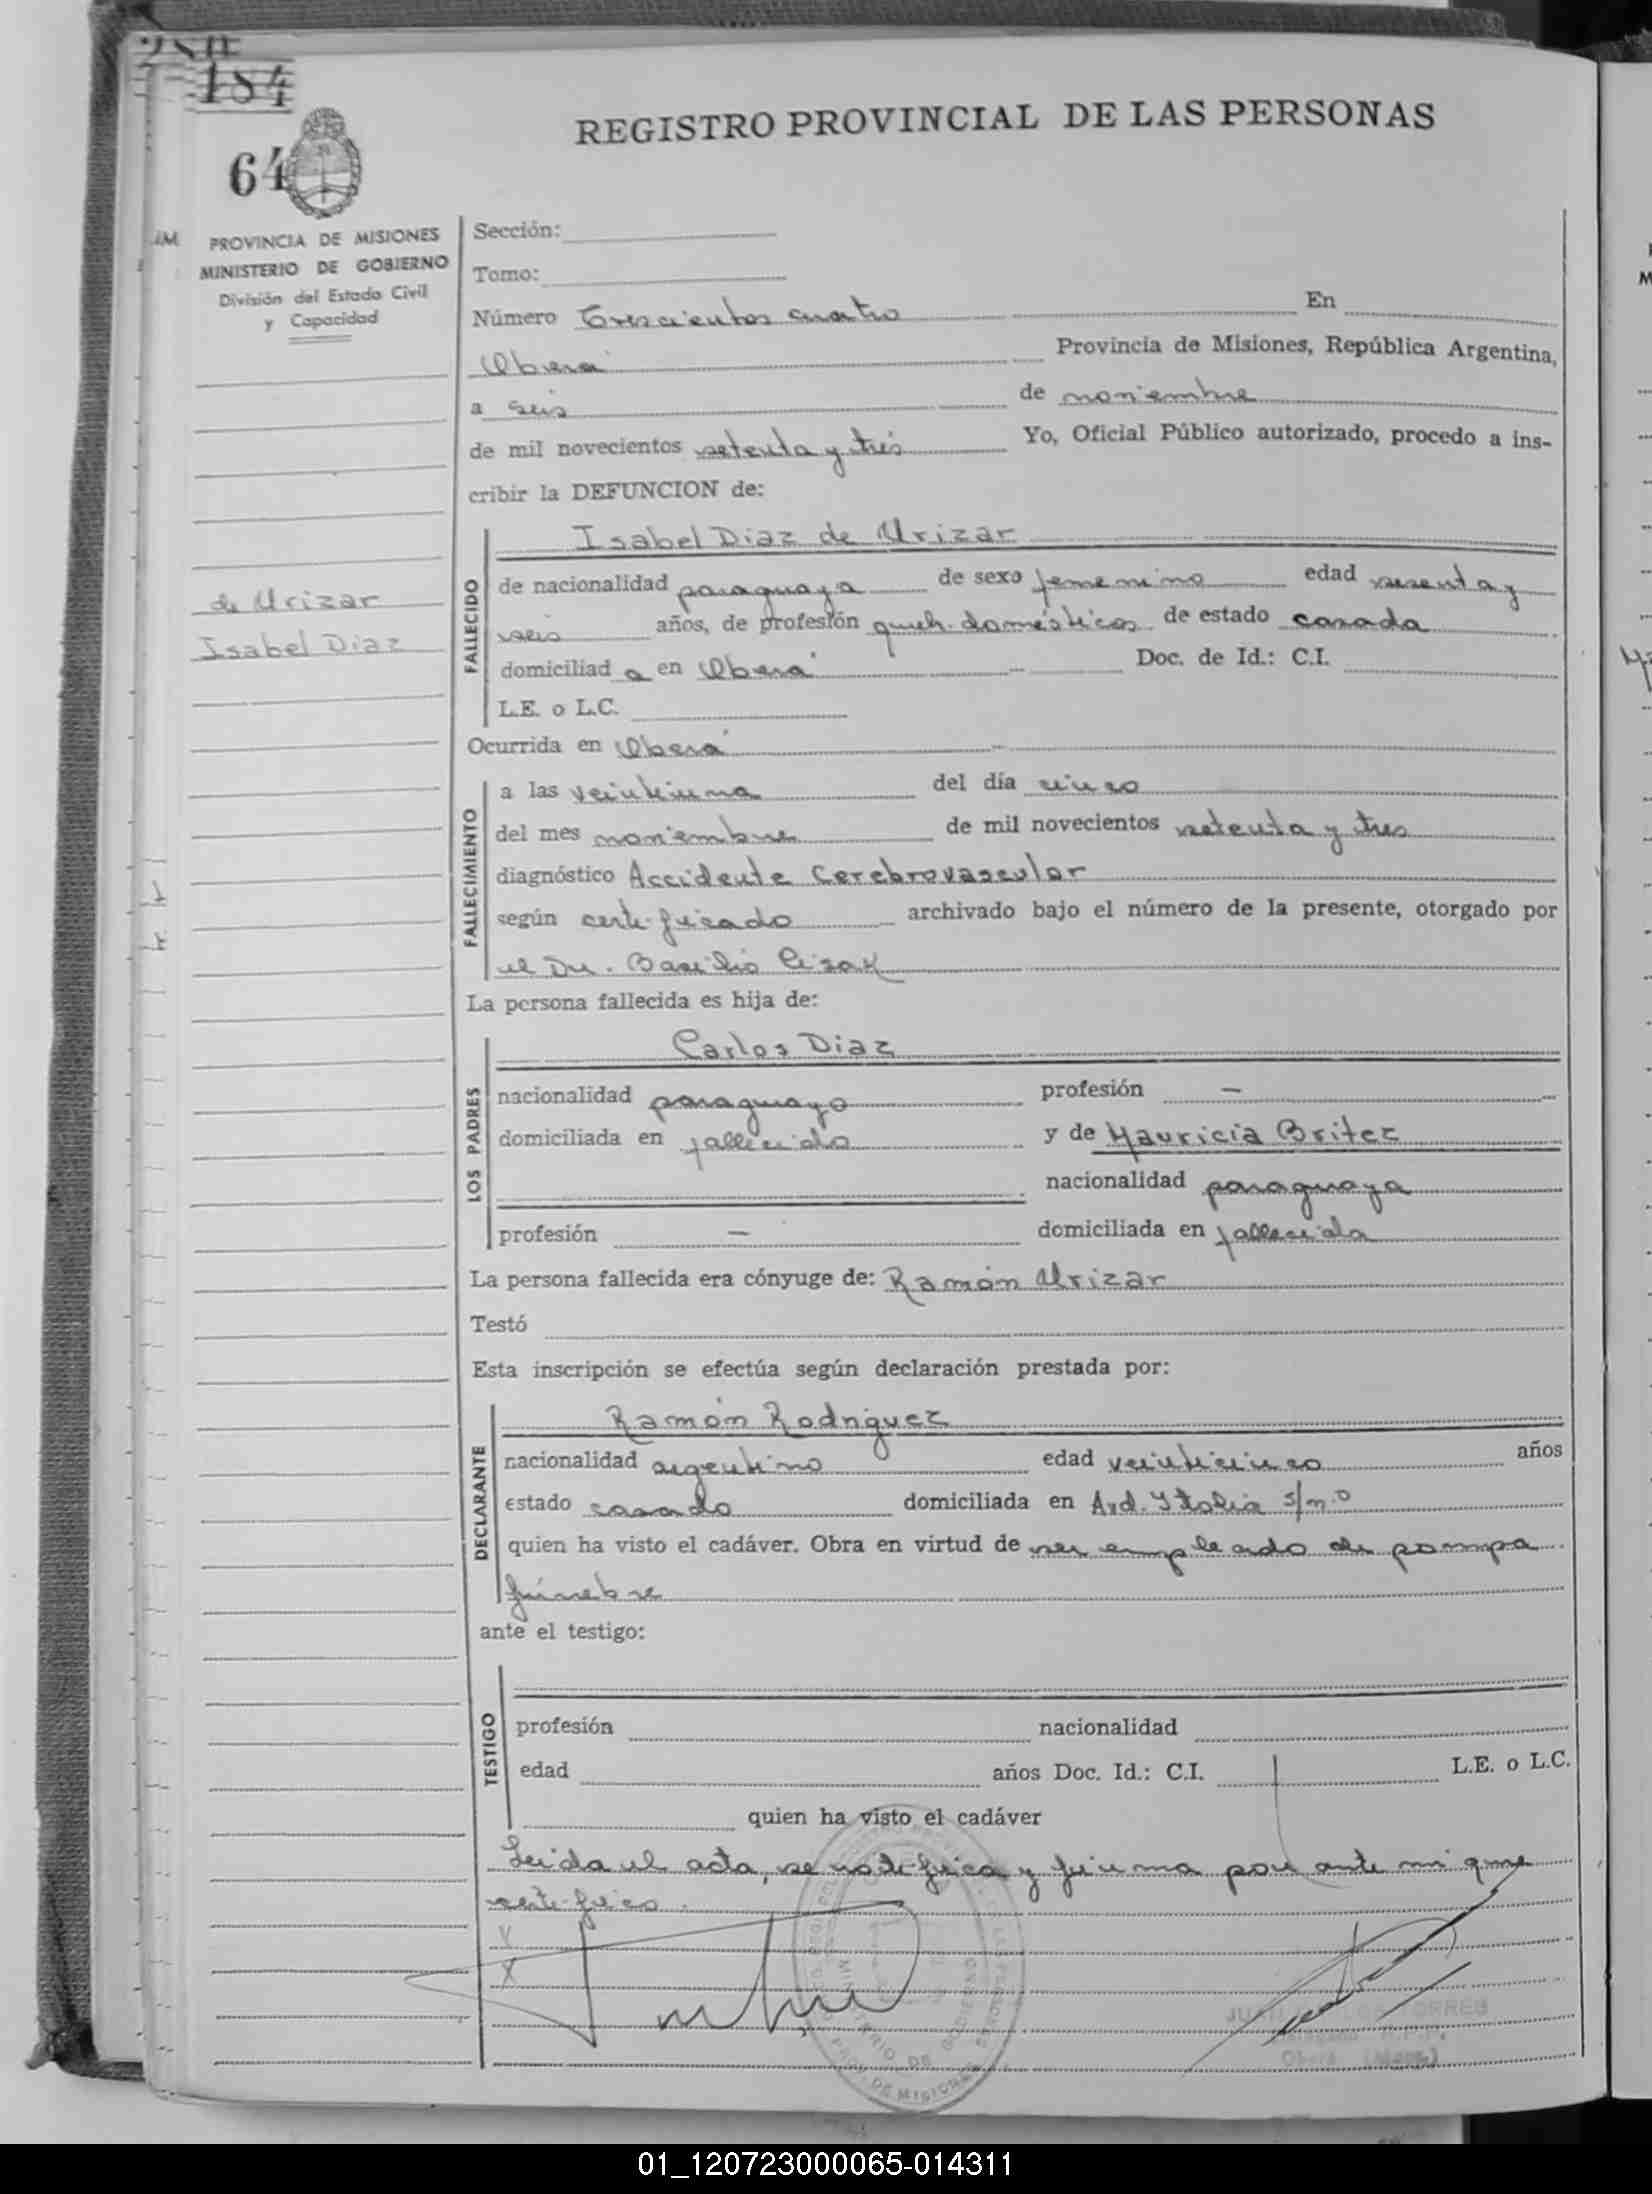 184
64
REGISTRO PROVINCIAL DE LAS PERSONAS
PROVINCIA DE MISIONES
MINISTERIO DE GOBIERNO
División del Estado Civil
y Capacidad
de Urizar
Isabel Diaz
Sección:
Tomo:
Número Trescientos cuatro En
Oberá Provincia de Misiones, República Argentina,
a seis de noviembre
de mil novecientos setenta y tres Yo, Oficial Público autorizado, procedo a ins-
cribir la DEFUNCION de:
FALLECIDO
Isabel Diaz de Urizar
de nacionalidad paraguaya de sexo femenino edad sesenta y
seis años, de profesión queh. domésticos de estado casada
domiciliad a en Oberá Doc. de Id.: C.I.
L.E. o L.C.
Ocurrida en Oberá
FALLECIMIENTO
a las veintiuna del día cinco
del mes noviembre de mil novecientos setenta y tres
diagnóstico Accidente Cerebrovascular
según certificado archivado bajo el número de la presente, otorgado por
el Dr. Basilio
La persona fallecida es hija de:
LOS PADRES
Carlos Diaz
nacionalidad paraguayo profesión —
domiciliada en fallecido y de Mauricia Britez
nacionalidad paraguaya
profesión — domiciliada en fallecida
La persona fallecida era cónyuge de: Ramón Urizar
Testó
Esta inscripción se efectúa según declaración prestada por:
DECLARANTE
Ramón Rodriguez
nacionalidad argentino edad veinticinco años
estado casado domiciliada en Avd. Italia s/n.o
quien ha visto el cadáver. Obra en virtud de ser empleado de pompa
fúnebre
ante el testigo:
TESTIGO
profesión nacionalidad
edad años Doc. Id.: C.I. L.E. o L.C.
quien ha visto el cadáver
Leida el acta, se notifica y firma por ante mi que
certifico.
X
MINISTERIO DE GOBIERNO
PROV. DE MISIONES
JUAN CARLOS TORRES
R.P.P.
Oberá (Mnes.)
01_120723000065-014311